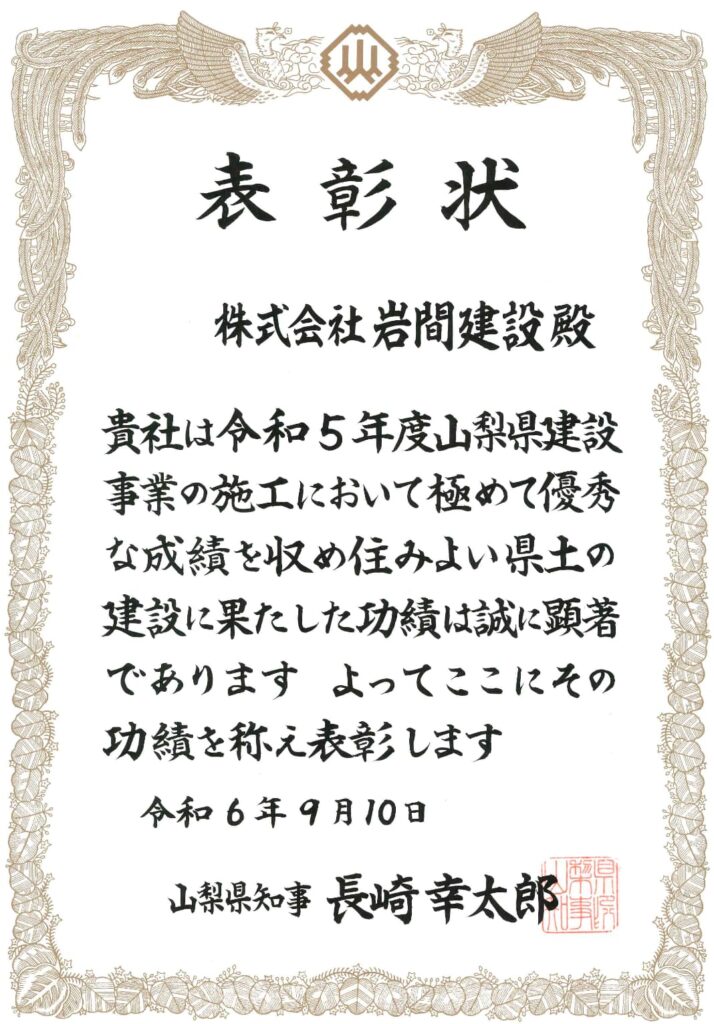 表彰状
株式会社岩間建設殿
貴社は令和5年度山梨県建設
事業の施工において極めて優秀
な成績を収め住みよい県土の
建設に果たした功績は誠に顕著
であります　よってここにその
功績を称え表彰します
令和6年9月10日
山梨県知事 長崎幸太郎